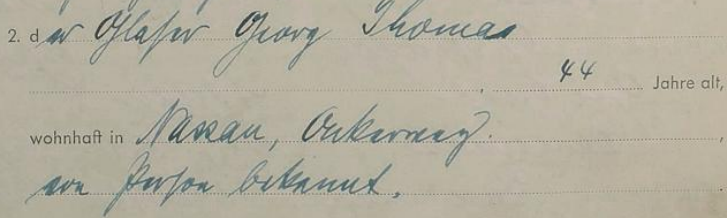 2. der Glaser Georg Thomas
44 Jahre alt,
wohnhaft in Nassau,
von Person bekannt.